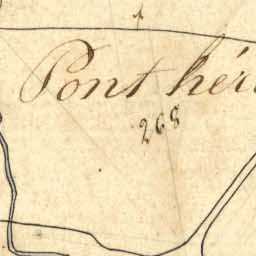 Pont hér
268